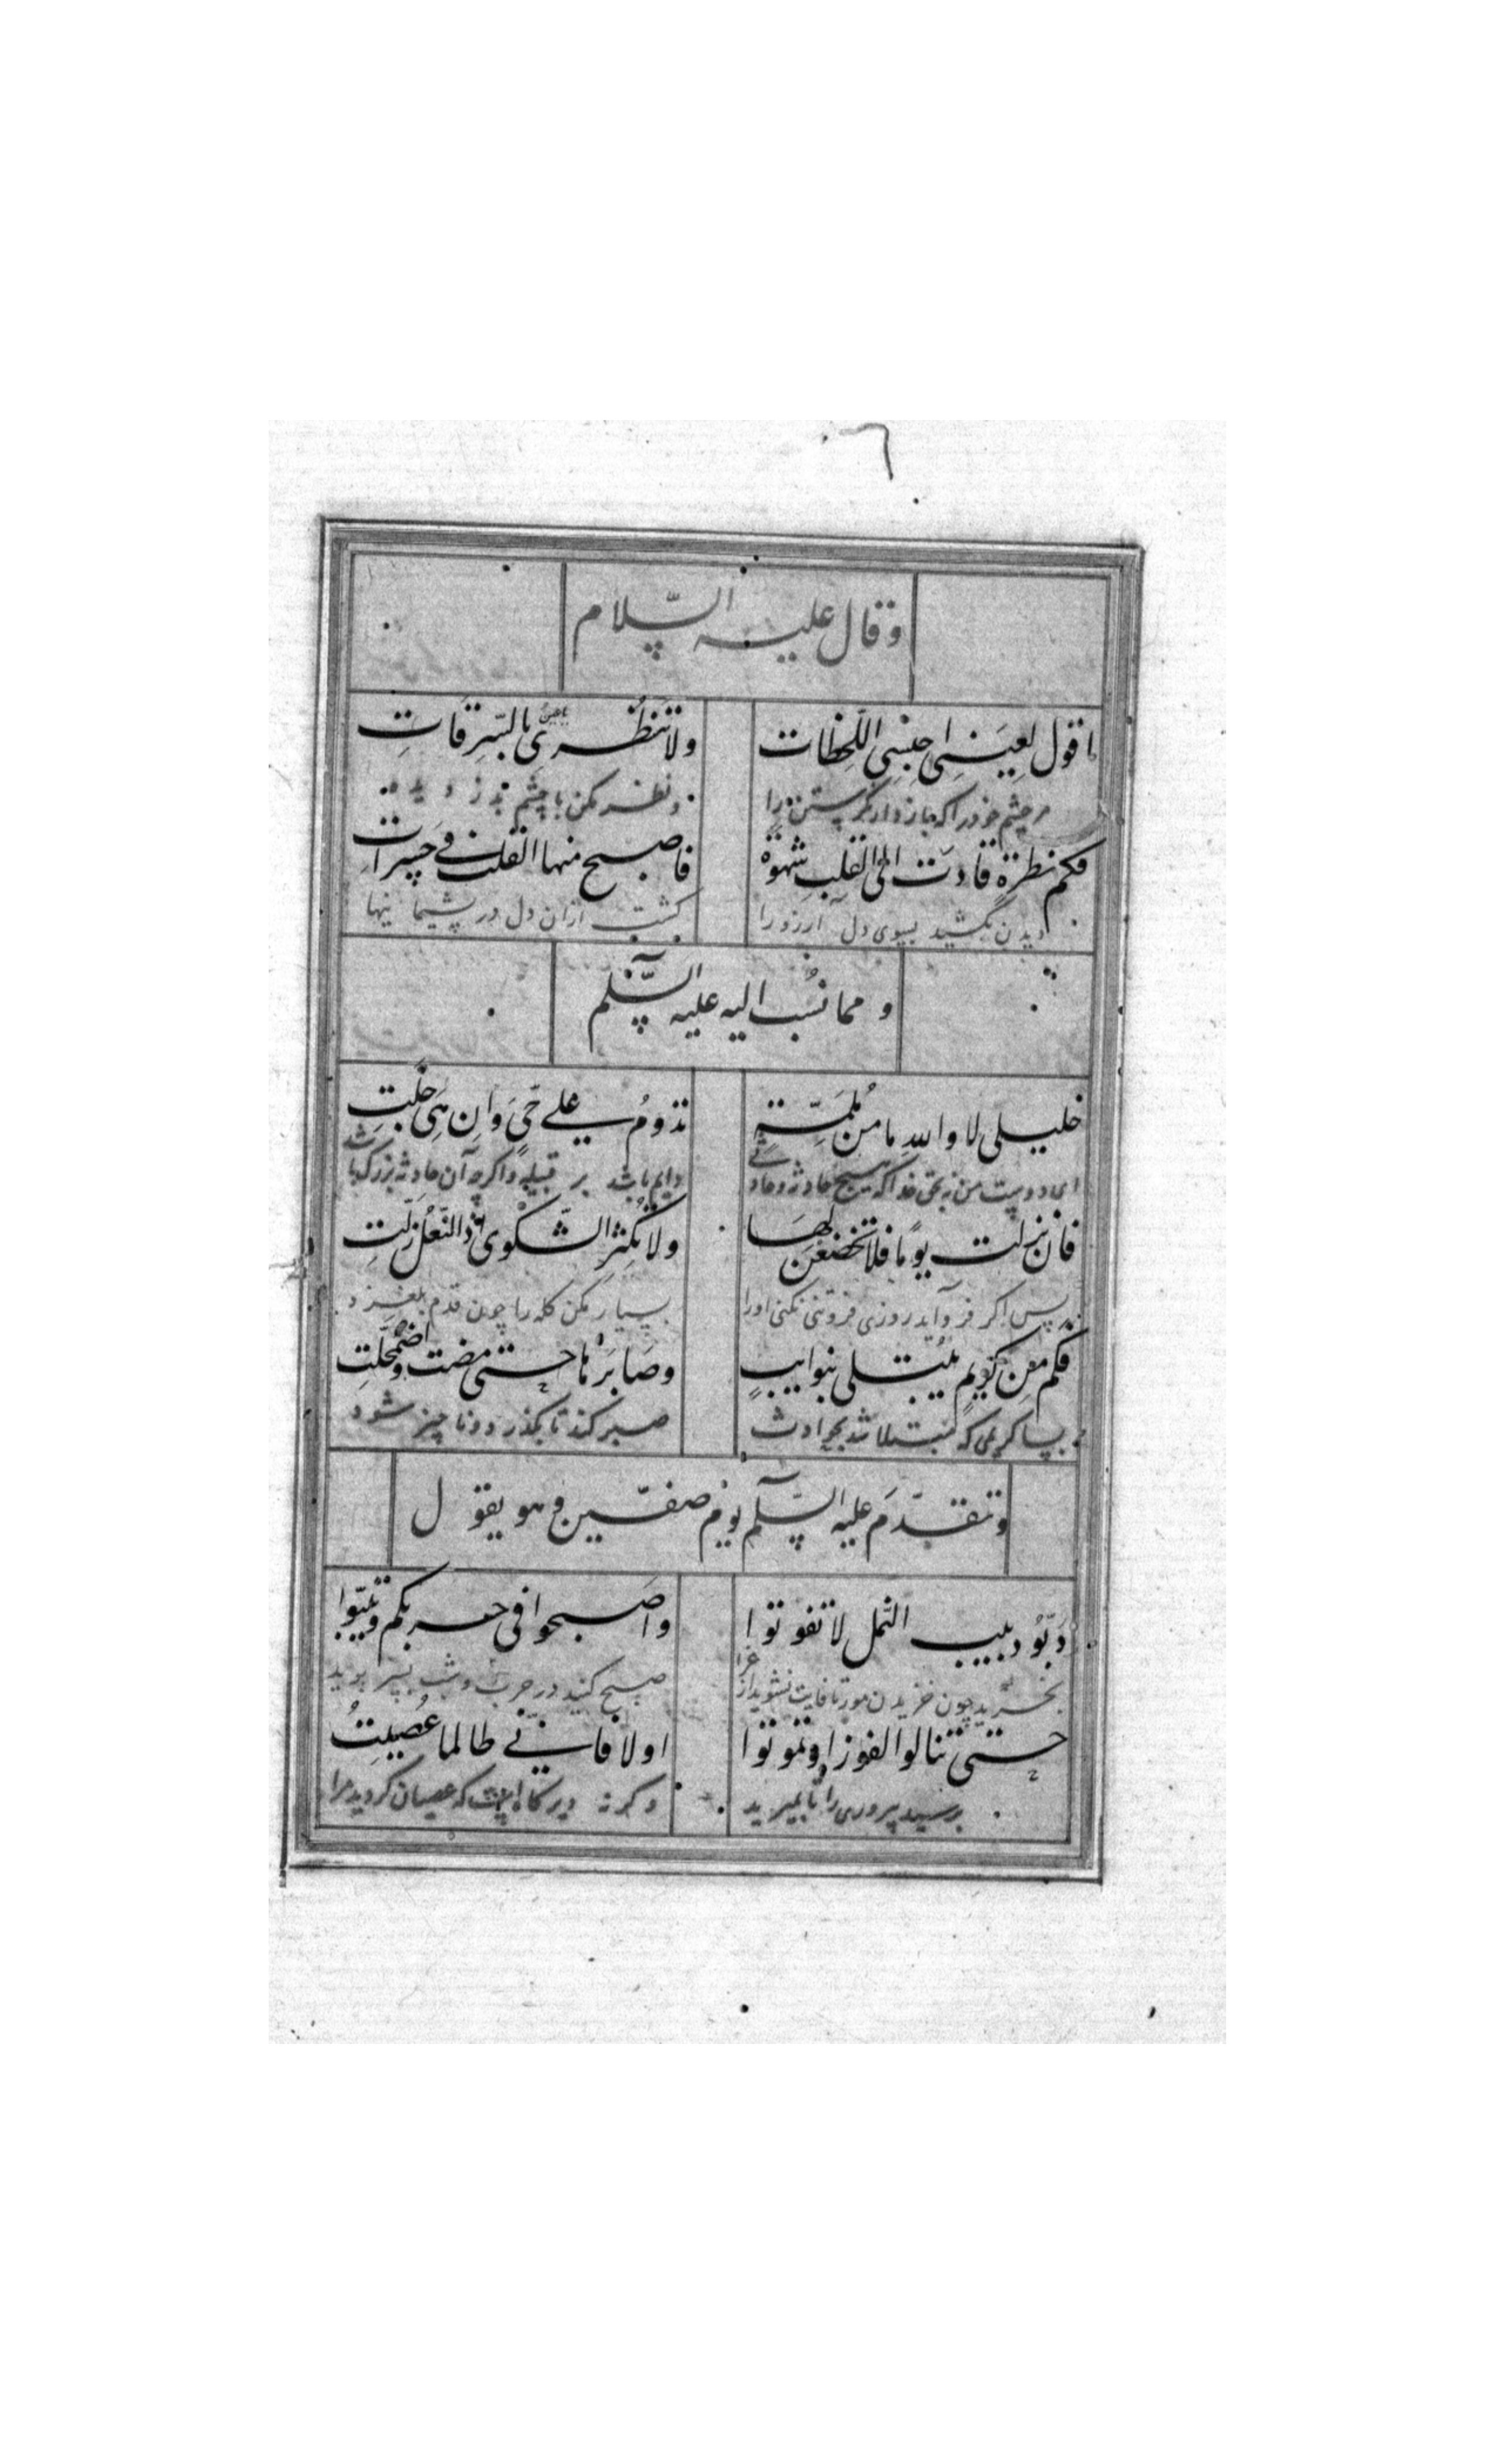 وقال علیه السّلام
اقول لعینی احبسی اللّحظات
ولا تنظری یا عین بالسّرقات
مر چشم خود را که باز دار نگرستن را
ونظر مکن با چشم بدزدیده
فکم نظرةٍ قادت الی القلبِ شهوةً
فاصبح منها القلب فی حسرات
دیدن بکشید بسوی دل آرزو را
گشت ازان دل در پشیمانیها
و مما نُسب الیه علیه السّلم
خلیلی لا والله ما من مُلمّةٍ
تدومُ علی حیٍّ وان هی جلّتِ
ای دوست من نه بحق خدا که هیچ حادثه وحادثی
دایم باشد بر قبیله واکرچه آن حادثه بزرک باشد
فان نزلت یومًا فلا تخضعن لها
ولا تُکثر الشّکوی اذا النّعل زلّتِ
پس اکر فرو آید روزی فروتنی نکنی اورا
بسیار مکن کله را چون قدم بلغزد
فکم من کریمٍ یُبتلی بنوایبٍ
وصابرَها حتی مضت واضمحلّتِ
بسا کریمی که مبتلا شد بحوادث
صبر کند تا بکذرد وناچیز شود
وتقدّم علیه السّلم یوم صفّین وهو یقول
دَبّو دبیب النّمل لا تفوتوا
واصبحوا فی حربکم وبیّتوا
بخزید چون خزیدن مور تا فایت نشوید از غزا
صبح کنید در حرب وشب بسر برید
حتی تنالوا الفوز او تموتوا
اولا فانّی طالما عُصیتُ
برسید پیروزی را تا بمیرید
وکرنه دیرکاه است که عصیان کردید مرا